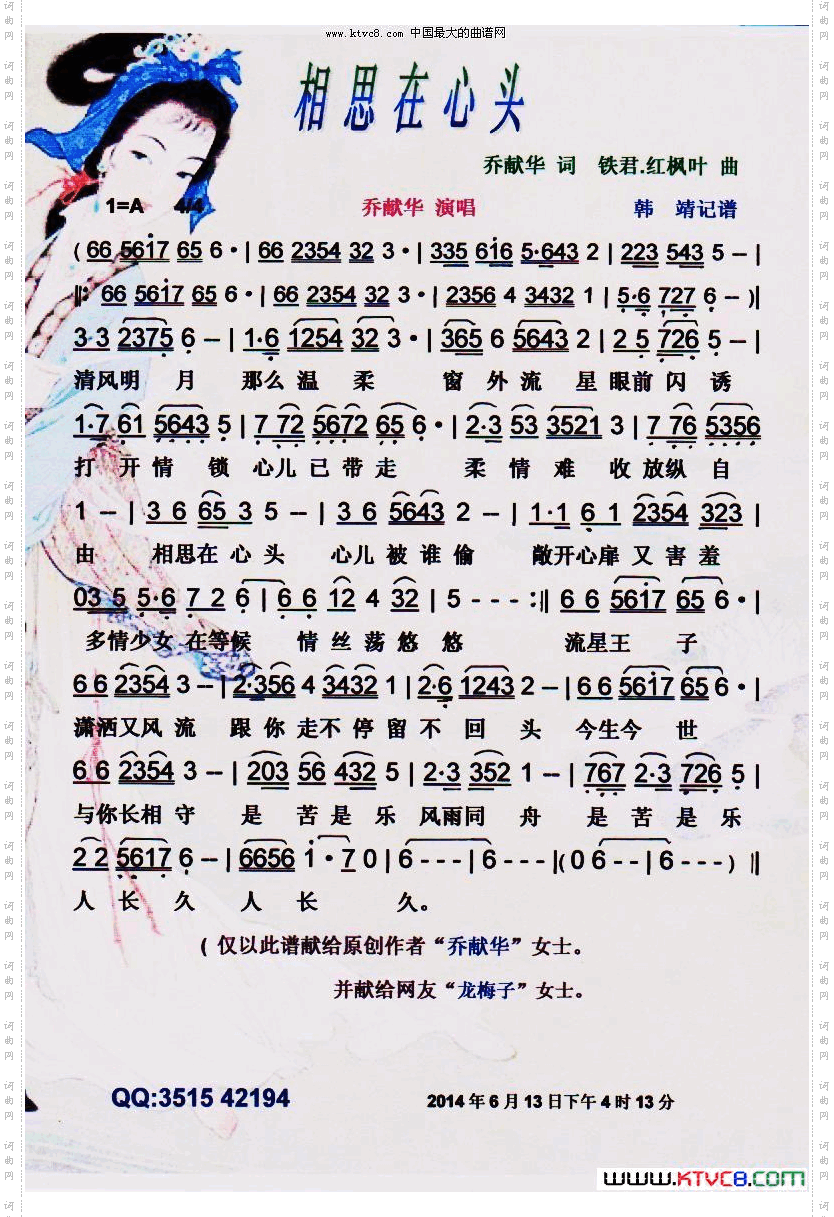 www.ktvc8.com 中国最大的曲谱网
相思在心头
乔献华 词 铁君.红枫叶 曲
1=A 4/4 乔献华 演唱 韩 靖记谱
( 66 5617 65 6 · | 66 2354 32 3 · | 335 616 5·643 2 | 223 543 5 – |
‖: 66 5617 65 6 · | 66 2354 32 3 · | 2356 4 3432 1 | 5·6 727 6 – )|
3 3 2375 6 – | 1·6 1254 32 3 · | 365 6 5643 2 | 2 5 726 5 – |
清风明 月 那么温 柔 窗 外流 星 眼前 闪 诱
1·7 61 5643 5 | 7 72 5672 65 6 · | 2·3 53 3521 3 | 7 76 5356
打 开 情 锁 心儿 已 带 走 柔 情 难 收 放纵 自
1 – | 3 6 65 3 5 – | 3 6 5643 2 – | 1·1 6 1 2354 323 |
由 相思在 心 头 心儿 被 谁 偷 敞开心扉 又 害 羞
03 5 5·6 7 2 6 | 6 6 12 4 32 | 5 - - - :‖ 6 6 5617 65 6 · |
多情少女 在等候 情 丝 荡 悠 悠 流星王 子
6 6 2354 3 – | 2·356 4 3432 1 | 2·6 1243 2 – | 6 6 5617 65 6 · |
潇洒又风 流 跟 你 走不 停 留 不 回 头 今生今 世
6 6 2354 3 – | 203 56 432 5 | 2·3 352 1 – | 767 2·3 726 5 |
与你长相 守 是 苦 是 乐 风雨同 舟 是 苦 是 乐
2 2 5617 6 – | 6656 1 · 7 0 | 6 - - - | 6 - - - |( 0 6 - - | 6 - - - ) ‖
人 长 久 人 长 久。
( 仅以此谱献给原创作者“乔献华”女士。
并献给网友“龙梅子”女士。
QQ:3515 42194 2014 年 6 月 13 日下午 4 时 13 分
www.KTVC8.com
词曲网